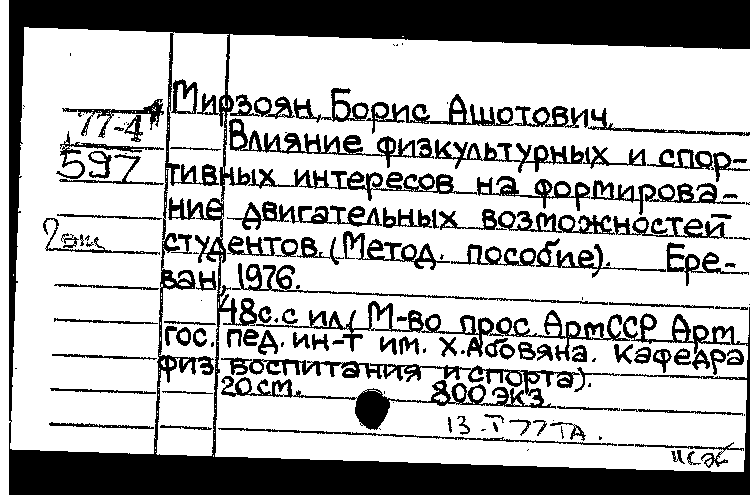 Мирзоян, Борис Ашотович.
77-4
Влияние физкультурных и спор-
597
тивных интересов на формирова-
ние двигательных возможностей
студентов. (Метод. пособие). Ере-
ван, 1976.
48с. с ил. (М-во прос. АрмССР. Арм.
гос. пед. ин-т им. Х.Абовяна. Кафедра
физ. воспитания и спорта).
20 см. 800 экз.
13-I 77 ТА.